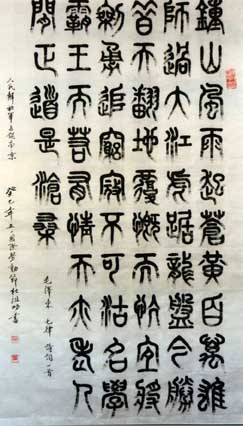 鍾山風雨起蒼黃百萬雄
師過大江虎踞龍盤今勝
昔天翻地覆慨而慷宜將
剩勇追窮寇不可沽名學
霸王天若有情天亦老人
間正道是滄桑
毛澤東七律詩詞一首
人民解放軍占領南京
癸巳年五一國際勞動節杜祖書